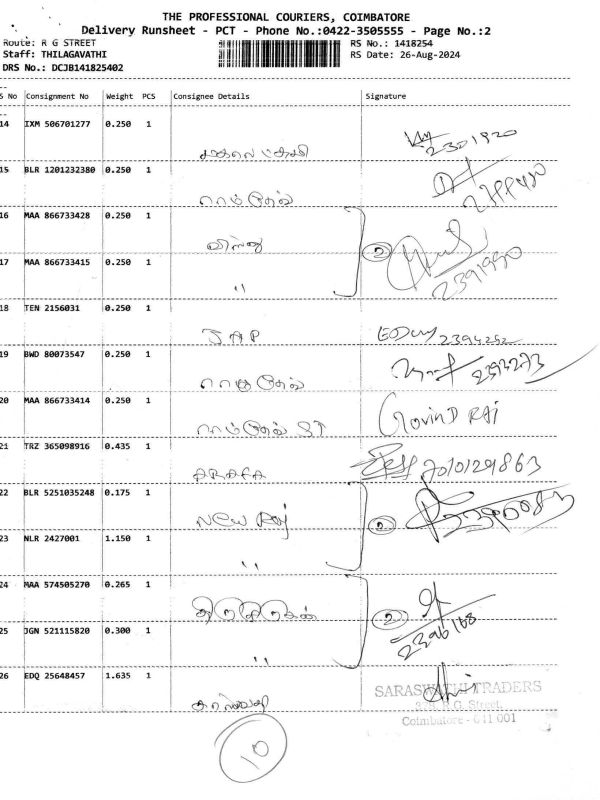 THE PROFESSIONAL COURIERS, COIMBATORE
Delivery Runsheet - PCT - Phone No.:0422-3505555 - Page No.:2
Route: R G STREET
RS No.: 1418254
Staff: THILAGAVATHI
RS Date: 26-Aug-2024
DRS No.: DCJB141825402
S No Consignment No Weight PCS Consignee Details Signature
14 IXM 506701277 0.250 1
2301920
15 BLR 1201232380 0.250 1
16 MAA 866733428 0.250 1
2
17 MAA 866733415 0.250 1 "
2391990
18 TEN 2156031 0.250 1
JAP 2394252
19 BWD 80073547 0.250 1
2393273
20 MAA 866733414 0.250 1
ராம்தேவ் ST GOVIND RAJ
21 TRZ 365098916 0.435 1
ARAFA 7010129863
22 BLR 5251035248 0.175 1
NEW Raj 2
23 NLR 2427001 1.150 1
"
24 MAA 574505270 0.265 1
2
2396168
25 JGN 521115820 0.300 1
"
26 EDQ 25648457 1.635 1
SARASWATHI TRADERS
R.G. Street,
Coimbatore - 641 001
10